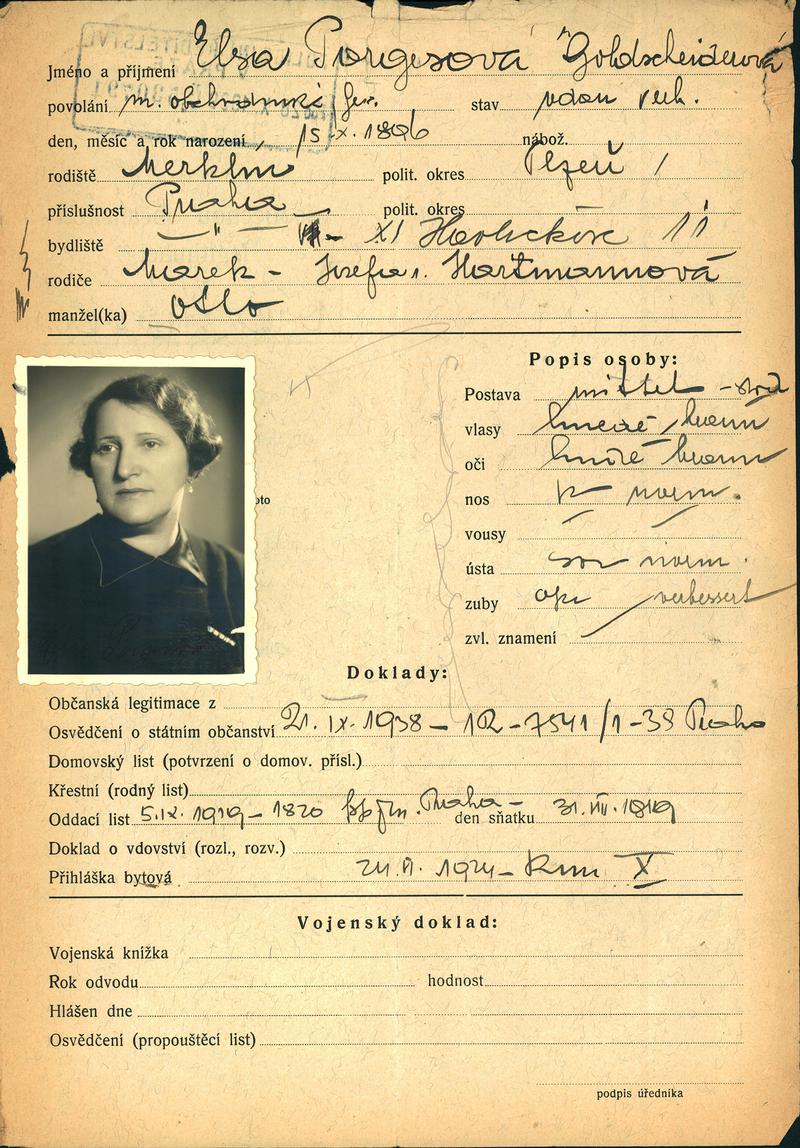 Jméno a příjmení Elsa Porgesová Goldscheiderová
povolání m. obchodníka stav vdan verh.
den, měsíc a rok narození 15 X. 1896 nábož.
rodiště Merklín polit. okres Plzeň /
příslušnost Praha polit. okres
bydliště — " — XI Havlíčkova 11
rodiče Marek - Josefa r. Hartmannová
manžel(ka) Otto
Popis osoby:
Postava mittel - stred
vlasy hnedé / braun
oči hnědé braun
nos norm.
vousy / /
ústa norm.
zuby opr verbessert
zvl. znamení /
oto
Doklady:
Občanská legitimace z
Osvědčení o státním občanství 21. IX. 1938 - 12 - 7541 / 1 - 38 Praha
Domovský list (potvrzení o domov. přísl.)
Křestní (rodný list)
Oddací list 5. IX. 1919 - 1820 Praha - den sňatku 31. VIII. 1919
Doklad o vdovství (rozl., rozv.)
Přihláška bytová 1924 - X
Vojenský doklad:
Vojenská knížka
Rok odvodu hodnost
Hlášen dne
Osvědčení (propouštěcí list)
podpis úředníka